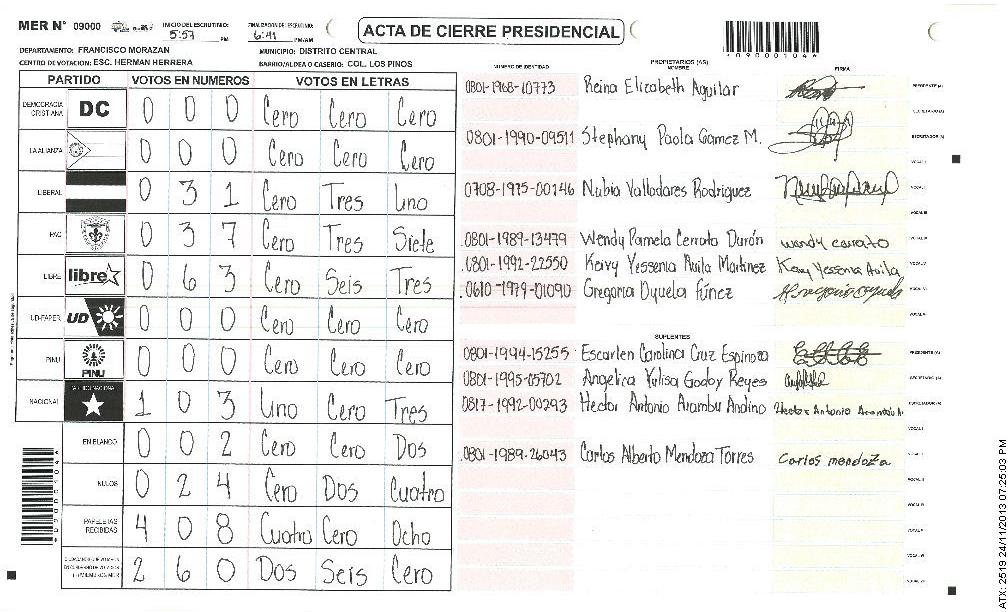 MER N° 09000
INICIO DEL ESCRUTINIO: 5:57 PM
FINALIZACION DEL ESCRUTINIO: 6:41 PM/AM
ACTA DE CIERRE PRESIDENCIAL
*09000104*
DEPARTAMENTO: FRANCISCO MORAZAN
MUNICIPIO: DISTRITO CENTRAL
CENTRO DE VOTACION: ESC. HERMAN HERRERA
BARRIO/ALDEA O CASERIO: COL. LOS PINOS
PARTIDO VOTOS EN NUMEROS VOTOS EN LETRAS
DEMOCRACIA CRISTIANA DC 0 0 0 Cero Cero Cero
LA ALIANZA 0 0 0 Cero Cero Cero
LIBERAL 0 3 1 Cero Tres Uno
PAC 0 3 7 Cero Tres Siete
LIBRE libre 0 6 3 Cero Seis Tres
UD-FAPER UD 0 0 0 Cero Cero Cero
PINU PINU 0 0 0 Cero Cero Cero
NACIONAL PARTIDO NACIONAL 1 0 3 Uno Cero Tres
EN BLANCO 0 0 2 Cero Cero Dos
NULOS 0 2 4 Cero Dos Cuatro
PAPELETAS RECIBIDAS 4 0 8 Cuatro Cero Ocho
2 6 0 Dos Seis Cero
*09000104*
NUMERO DE IDENTIDAD
PROPIETARIOS (AS)
NOMBRE
FIRMA
0801-1968-10773 Reina Elizabeth Aguilar PRESIDENTE (A)
SECRETARIO (A)
0801-1990-09511 Stephany Paola Gamez M. ESCRUTADOR (A)
VOCAL I
0708-1975-00146 Nubia Valladares Rodriguez
0801-1989-13479 Wendy Pamela Cerrato Durón wendy cerrato
0801-1992-22550 Keivy Yessenia Avila Martinez Keivy Yessenia Avila
0610-1979-01090 Gregoria Oyuela Fúnez
SUPLENTES
0801-1994-15255 Escarlen Carolina Cruz Espinoza PRESIDENTE (A)
0801-1995-05702 Angelica Yulisa Godoy Reyes SECRETARIO (A)
0817-1992-00293 Hector Antonio Arambu Andino Hector Antonio Arambu A. ESCRUTADOR (A)
0801-1989-26043 Carlos Alberto Mendoza Torres Carlos mendoza
ATX: 2519 24/11/2013 07:25:03 PM